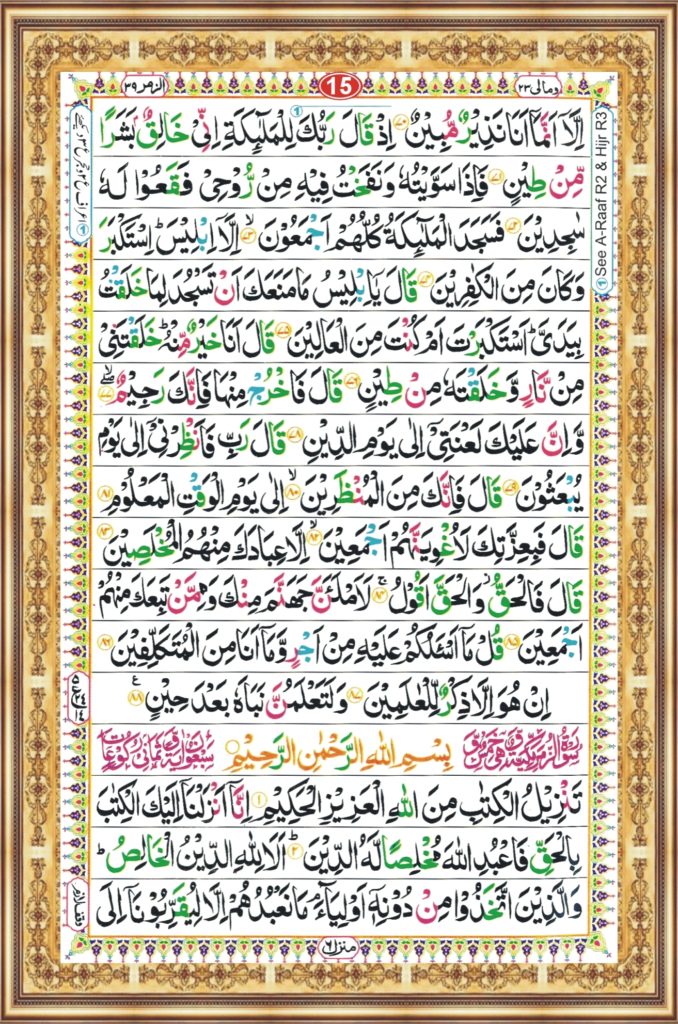 الزمر ٣٩
15
ومالى ٢٣
اِلَّاۤ اَنَّمَاۤ اَنَا نَذِيْرٌ مُّبِيْنٌ ۝٧٠ اِذْ قَالَ رَبُّكَ لِلْمَلٰٓئِكَةِ اِنِّىْ خَالِقٌۢ بَشَرًا
مِّنْ طِيْنٍ ۝٧١ فَاِذَا سَوَّيْتُهٗ وَنَفَخْتُ فِيْهِ مِنْ رُّوْحِىْ فَقَعُوْا لَهٗ
سٰجِدِيْنَ ۝٧٢ فَسَجَدَ الْمَلٰٓئِكَةُ كُلُّهُمْ اَجْمَعُوْنَ ۙ‏۝٧٣ اِلَّاۤ اِبْلِيْسَ ؕ اِسْتَكْبَرَ
وَكَانَ مِنَ الْكٰفِرِيْنَ ۝٧٤ قَالَ يٰۤاِبْلِيْسُ مَا مَنَعَكَ اَنْ تَسْجُدَ لِمَا خَلَقْتُ
بِيَدَىَّ ؕ اَسْتَكْبَرْتَ اَمْ كُنْتَ مِنَ الْعَالِيْنَ ۝٧٥ قَالَ اَنَا خَيْرٌ مِّنْهُ ؕ خَلَقْتَنِىْ
مِنْ نَّارٍ وَّخَلَقْتَهٗ مِنْ طِيْنٍ ۝٧٦ قَالَ فَاخْرُجْ مِنْهَا فَاِنَّكَ رَجِيْمٌ ۝٧٧
وَّاِنَّ عَلَيْكَ لَعْنَتِىْۤ اِلٰى يَوْمِ الدِّيْنِ ۝٧٨ قَالَ رَبِّ فَاَنْظِرْنِىْۤ اِلٰى يَوْمِ
يُبْعَثُوْنَ ۝٧٩ قَالَ فَاِنَّكَ مِنَ الْمُنْظَرِيْنَ ۙ‏۝٨٠ اِلٰى يَوْمِ الْوَقْتِ الْمَعْلُوْمِ ۝٨١
قَالَ فَبِعِزَّتِكَ لَاُغْوِيَنَّهُمْ اَجْمَعِيْنَ ۙ‏۝٨٢ اِلَّا عِبَادَكَ مِنْهُمُ الْمُخْلَصِيْنَ ۝٨٣
قَالَ فَالْحَقُّ وَالْحَقَّ اَقُوْلُ ۝٨٤ لَاَمْلَئَنَّ جَهَنَّمَ مِنْكَ وَمِمَّنْ تَبِعَكَ مِنْهُمْ
اَجْمَعِيْنَ ۝٨٥ قُلْ مَاۤ اَسْئَلُكُمْ عَلَيْهِ مِنْ اَجْرٍ وَّمَاۤ اَنَا مِنَ الْمُتَكَلِّفِيْنَ ۝٨٦
اِنْ هُوَ اِلَّا ذِكْرٌ لِّلْعٰلَمِيْنَ ۝٨٧ وَلَتَعْلَمُنَّ نَبَاَهٗ بَعْدَ حِيْنٍ ۝٨٨
بِسْمِ اللهِ الرَّحْمٰنِ الرَّحِيْمِ
تَنْزِيْلُ الْكِتٰبِ مِنَ اللهِ الْعَزِيْزِ الْحَكِيْمِ ۝١ اِنَّاۤ اَنْزَلْنَاۤ اِلَيْكَ الْكِتٰبَ
بِالْحَقِّ فَاعْبُدِ اللهَ مُخْلِصًا لَّهُ الدِّيْنَ ؕ‏۝٢ اَلَا لِلّٰهِ الدِّيْنُ الْخَالِصُ ؕ
وَالَّذِيْنَ اتَّخَذُوْا مِنْ دُوْنِهٖۤ اَوْلِيَآءَ ۘ مَا نَعْبُدُهُمْ اِلَّا لِيُقَرِّبُوْنَاۤ اِلَى
منزل ٦
① See A-Raaf R2 & Hijr R3